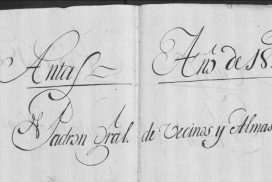 Antas Año de 18
Padron Gral. de Vecinos y Almas